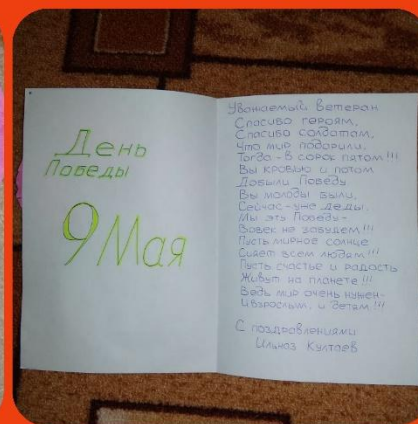 День
Победы
9 Мая
Уважаемый ветеран
Спасибо героям,
Спасибо солдатам,
Что мир подарили,
Тогда - в сорок пятом!!!
Вы кровью и потом
Добыли Победу.
Вы молоды были,
Сейчас - уже деды.
Мы эту Победу -
Вовек не забудем!!!
Пусть мирное солнце
Сияет всем людям!!!
Пусть счастье и радость
Живут на планете!!!
Ведь мир очень нужен -
И взрослым, и детям!!!
С поздравлениями
Ильназ Култаев